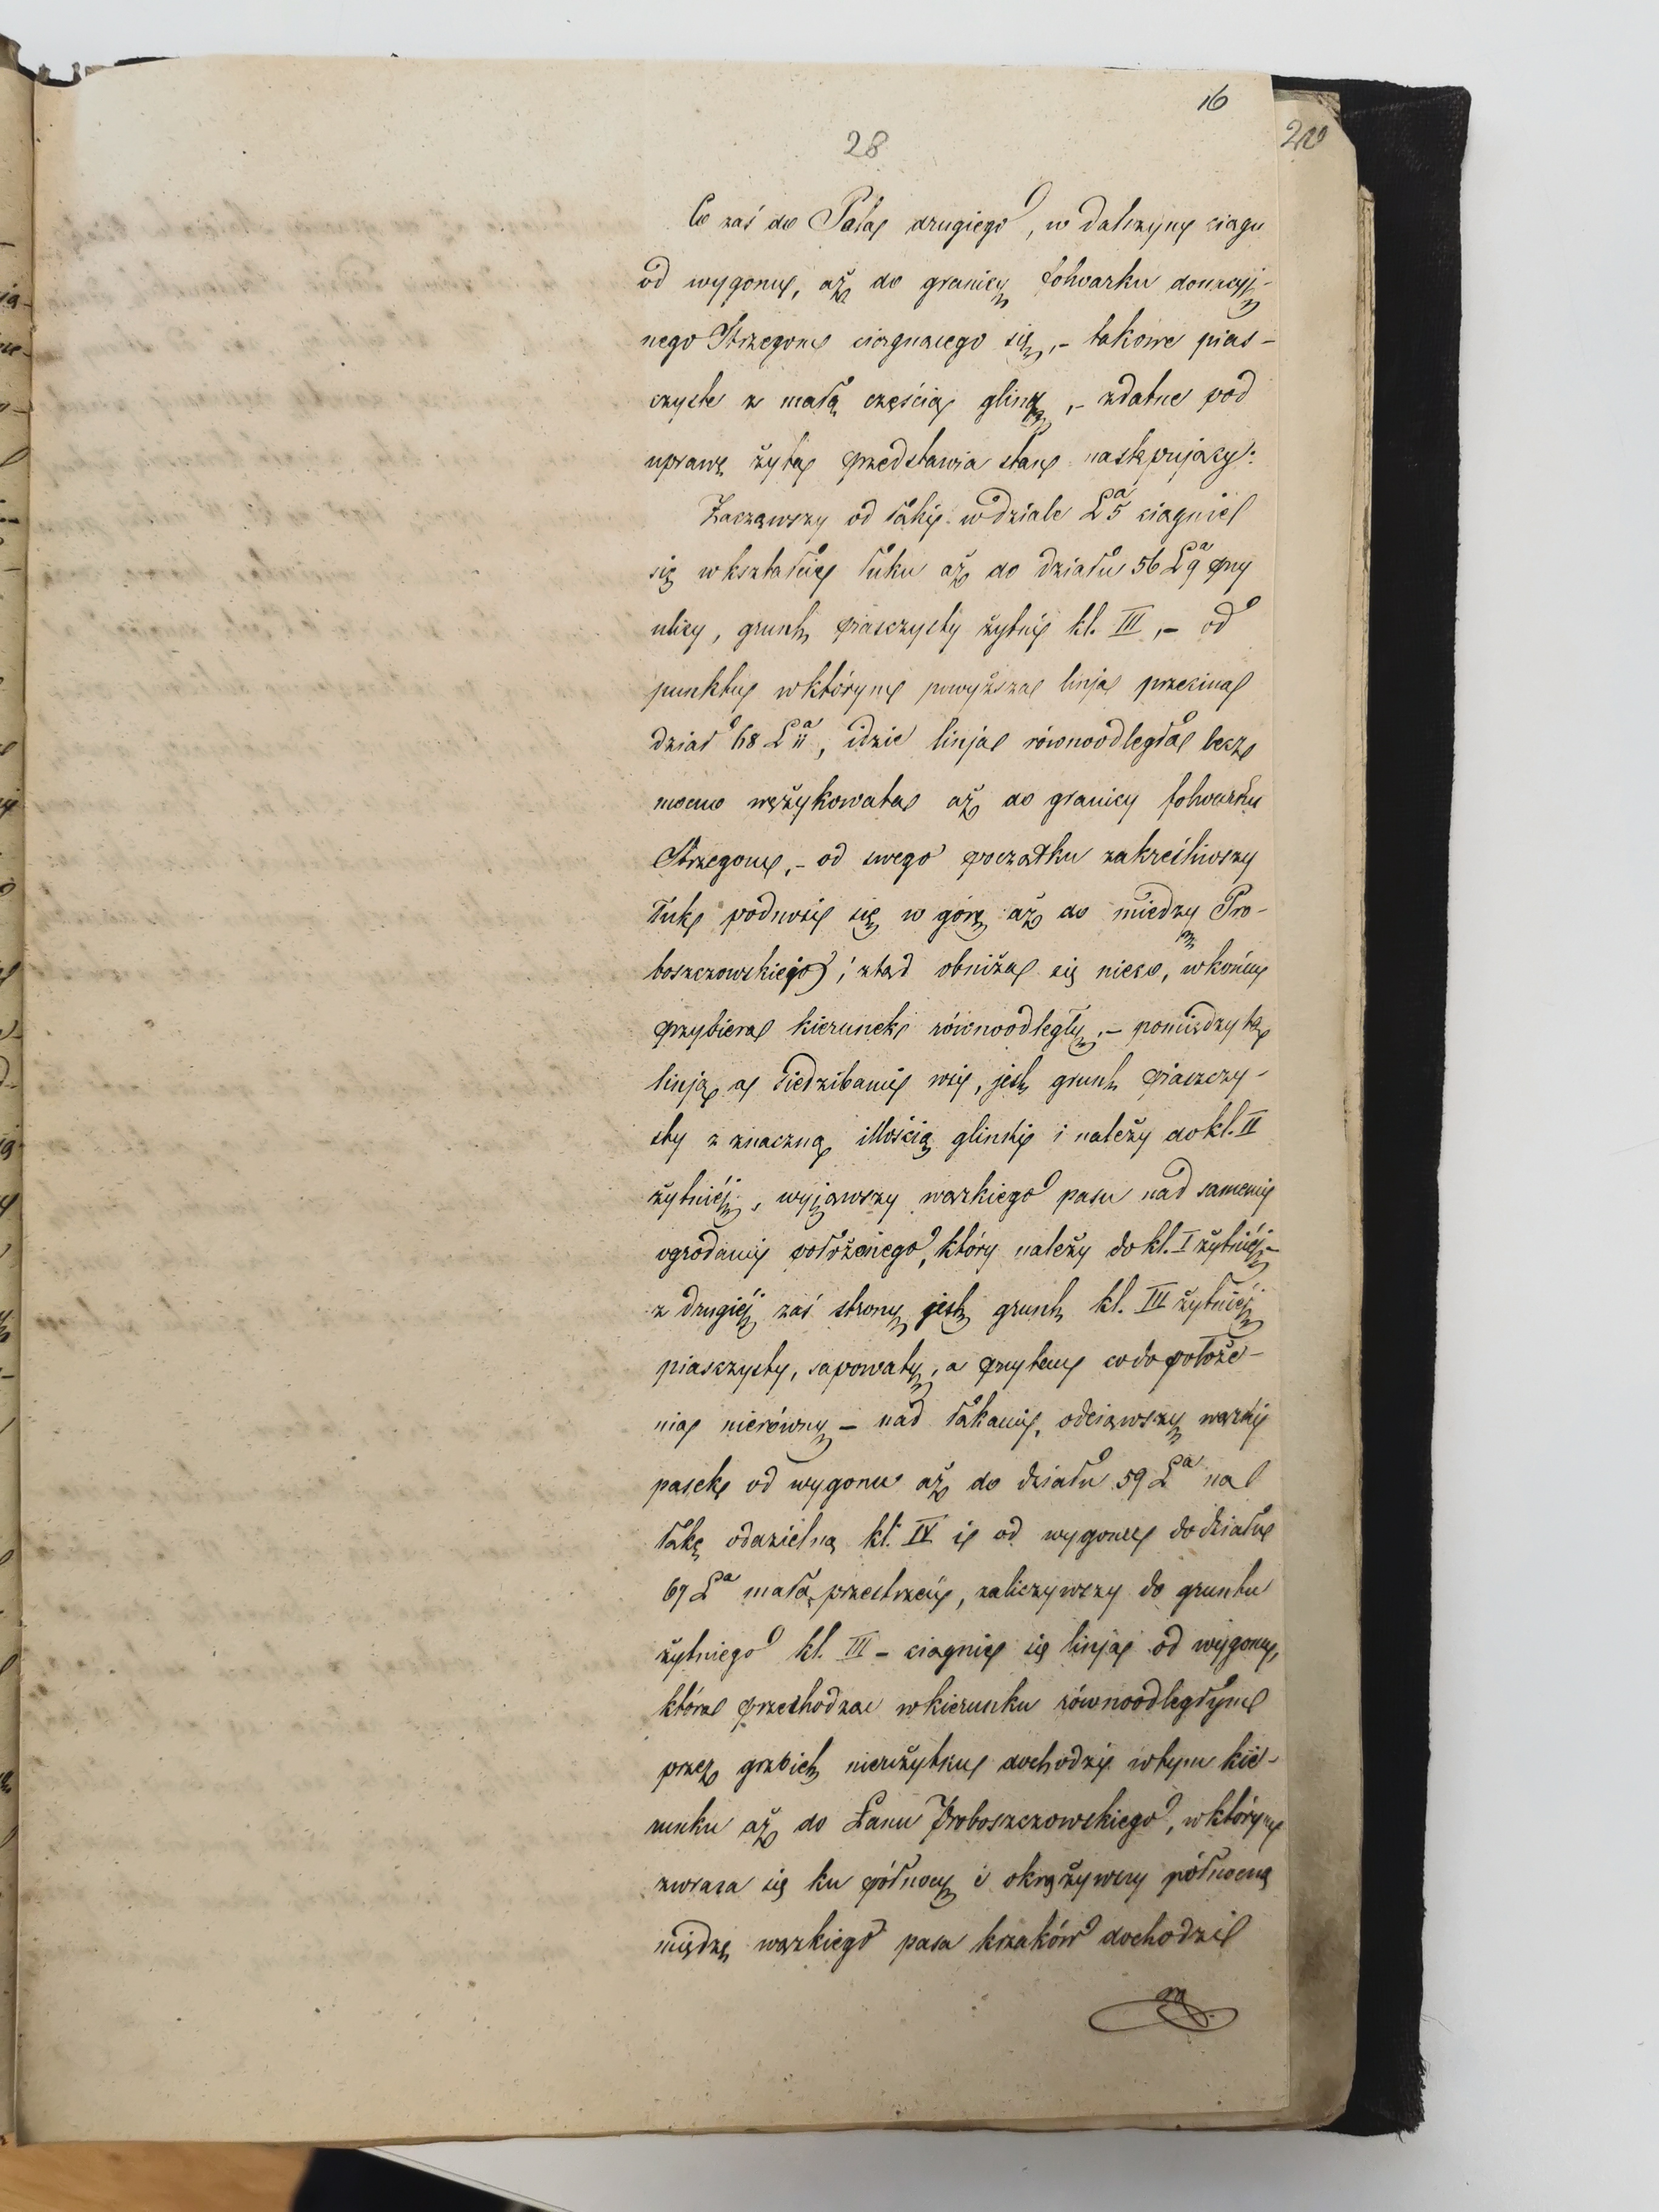 16
28
Co zaś do Pola drugiego, w dalszym ciągu
od wygonu, aż do granicy folwarku donacyj-
nego Strzegom ciągnącego się, – takowe pias-
czyste z małą częścią gliny, – zdatne pod
uprawę żyta przedstawia stan następujący:
Zacząwszy od łąki w dziale Lª 5 ciągnie
się w kształcie łuku aż do działu 56 Lª 9 przy
ulicy, grunt piasczysty żytni kl. III, – od
punktu w którym powyższa linja przecina
dział 68 Lª 11, idzie linja równoodległa lecz
mocno wężykowata aż do granicy folwarku
Strzegom, – od swego początku zakreśliwszy
łuk podnosi się w górę aż do miedzy Pro-
boszczowskiego; ztąd obniża się nieco, w końcu
przybiera kierunek równoodległy, – pomiędzy tą
linją a siedzibami wsi, jest grunt piaszczy-
sty z znaczną illością glinki i należy do kl. II
żytniéj, wyjąwszy wązkiego pasu nad samemi
ogrodami położonego, który należy do kl. I żytniéj –
z drugiéj zaś strony jest grunt kl. III żytniéj
piasczysty, sapowaty, a przytem co do położe-
nia nierówny – nad łąkami, odciąwszy wązki
pasek od wygonu aż do działu 59 Lª na
łąkę oddzielną kl. IV i od wygonu do działu
69 Lª małą przestrzeń, zaliczywszy do gruntu
żytniego kl. III – ciągnie się linja od wygonu,
która przechodząc w kierunku równoodległym
przez grzbiet nieużytku dochodzi w tym kie-
runku aż do Łanu Proboszczowskiego, w którym
zwraca się ku północy i okrążywszy północną
miedzę wązkiego pasa krzaków dochodzi